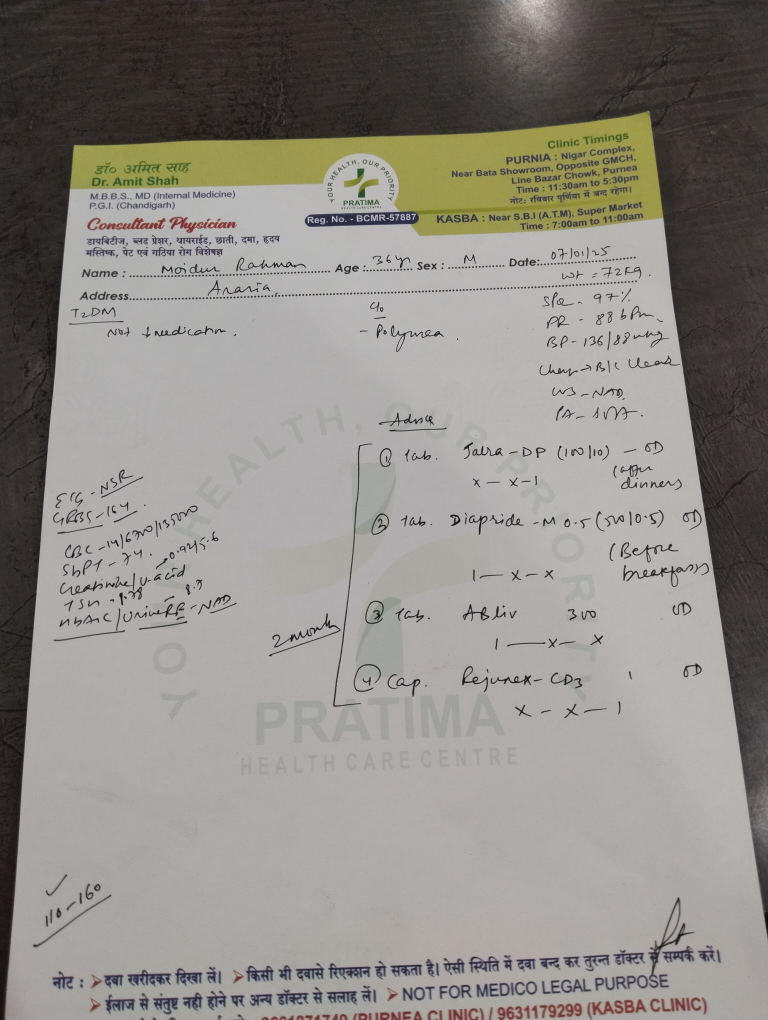 डॉ० अमित साह
Dr. Amit Shah
M.B.B.S., MD (Internal Medicine)
P.G.I. (Chandigarh)
Consultant Physician
डायबिटीज, ब्लड प्रेशर, थायराईड, छाती, दमा, हृदय
मस्तिष्क, पेट एवं गठिया रोग विशेषज्ञ
YOUR HEALTH, OUR PRIORITY
PRATIMA
HEALTH CARE CENTRE
Reg. No. - BCMR-57887
Clinic Timings
PURNIA : Nigar Complex,
Near Bata Showroom, Opposite GMCH,
Line Bazar Chowk, Purnea
Time : 11:30am to 5:30pm
नोट: रविवार पूर्णिया में बन्द रहेगा।
KASBA : Near S.B.I (A.T.M), Super Market
Time : 7:00am to 11:00am
Name : Moidur Rahman Age : 36yr Sex : M Date: 07/01/25
Address Araria
Wt = 72kg.
T2DM
Not medication.
c/o
- Polyurea.
97%
PR - 88 bpm
BP - 136/88 mmhg
Chest → B/L Clear
NAD
PA -
Advice
① Tab. DP (100/10) - OD
(after dinner)
x - x - 1
② Tab. Diapride - M 0.5 (500/0.5) OD
(Before breakfast)
1 - x - x
③ Tab. ABliv 300 OD
1 - x - x
④ Cap. Rejunex - CD3 1 OD
x - x - 1
2 months
ECG - NSR
GRBS - 164
CBC - 14/6700/135000
SGPT - 74.
Creatinine/U. acid → 0.92/5.6
TSH -
HbA1C/Urine RE - NAD
YOUR HEALTH, OUR PRIORITY
PRATIMA
HEALTH CARE CENTRE
110-160
नोट : ➤दवा खरीदकर दिखा लें। ➤किसी भी दवासे रिएक्शन हो सकता है। ऐसी स्थिति में दवा बन्द कर तुरन्त डॉक्टर से सम्पर्क करें।
➤ ईलाज से संतुष्ट नही होने पर अन्य डॉक्टर से सलाह लें। ➤ NOT FOR MEDICO LEGAL PURPOSE
(PURNEA CLINIC) / 9631179299 (KASBA CLINIC)